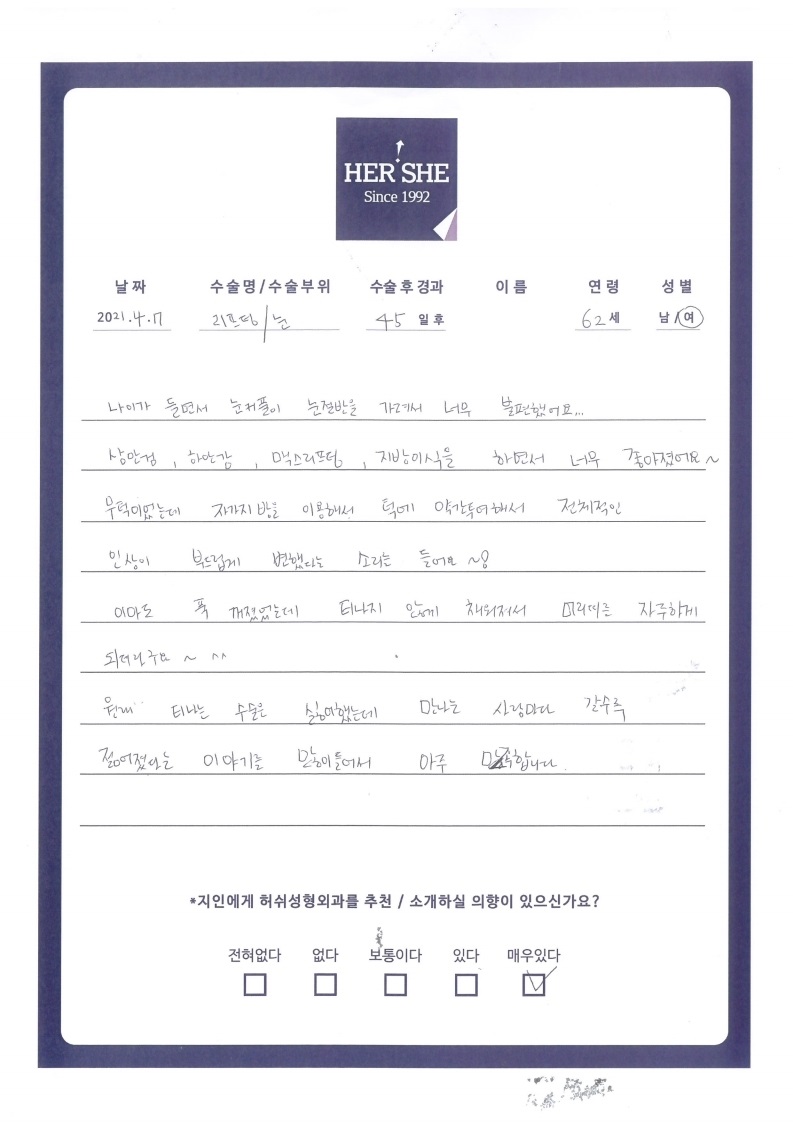 HER'SHE
Since 1992
날 짜 수술명/수술부위 수술 후 경과 이 름 연 령 성 별
2021.4.7 리프팅/눈 45 일 후 62세 남/여
나이가 들면서 눈꺼풀이 눈절반을 가려서 너무 불편했어요...
상안검, 하안검, 맥스리프팅, 지방이식을 하면서 너무 좋아졌어요~
무턱이었는데 자가지방을 이용해서 턱에 약간투여해서 전체적인
인상이 부드럽게 변했다는 소리는 들어요~?
이마도 푹 꺼졌었는데 티나지 않게 채워져서 머리띠를 자주하게
되더라구요~ ^^
원래 티나는 수술은 싫어했는데 만나는 사람마다 갈수록
젊어졌다는 이야기를 많이들어서 아주 만족합니다.
*지인에게 허쉬성형외과를 추천 / 소개하실 의향이 있으신가요?
전혀없다 없다 보통이다 있다 매우있다